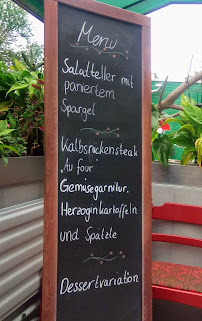 Menü
Salatteller mit
paniertem
Spargel
Kalbsrückensteak
"Au four"
Gemüsegarnitur,
Herzoginkartoffeln
und Spätzle
Dessertvariation